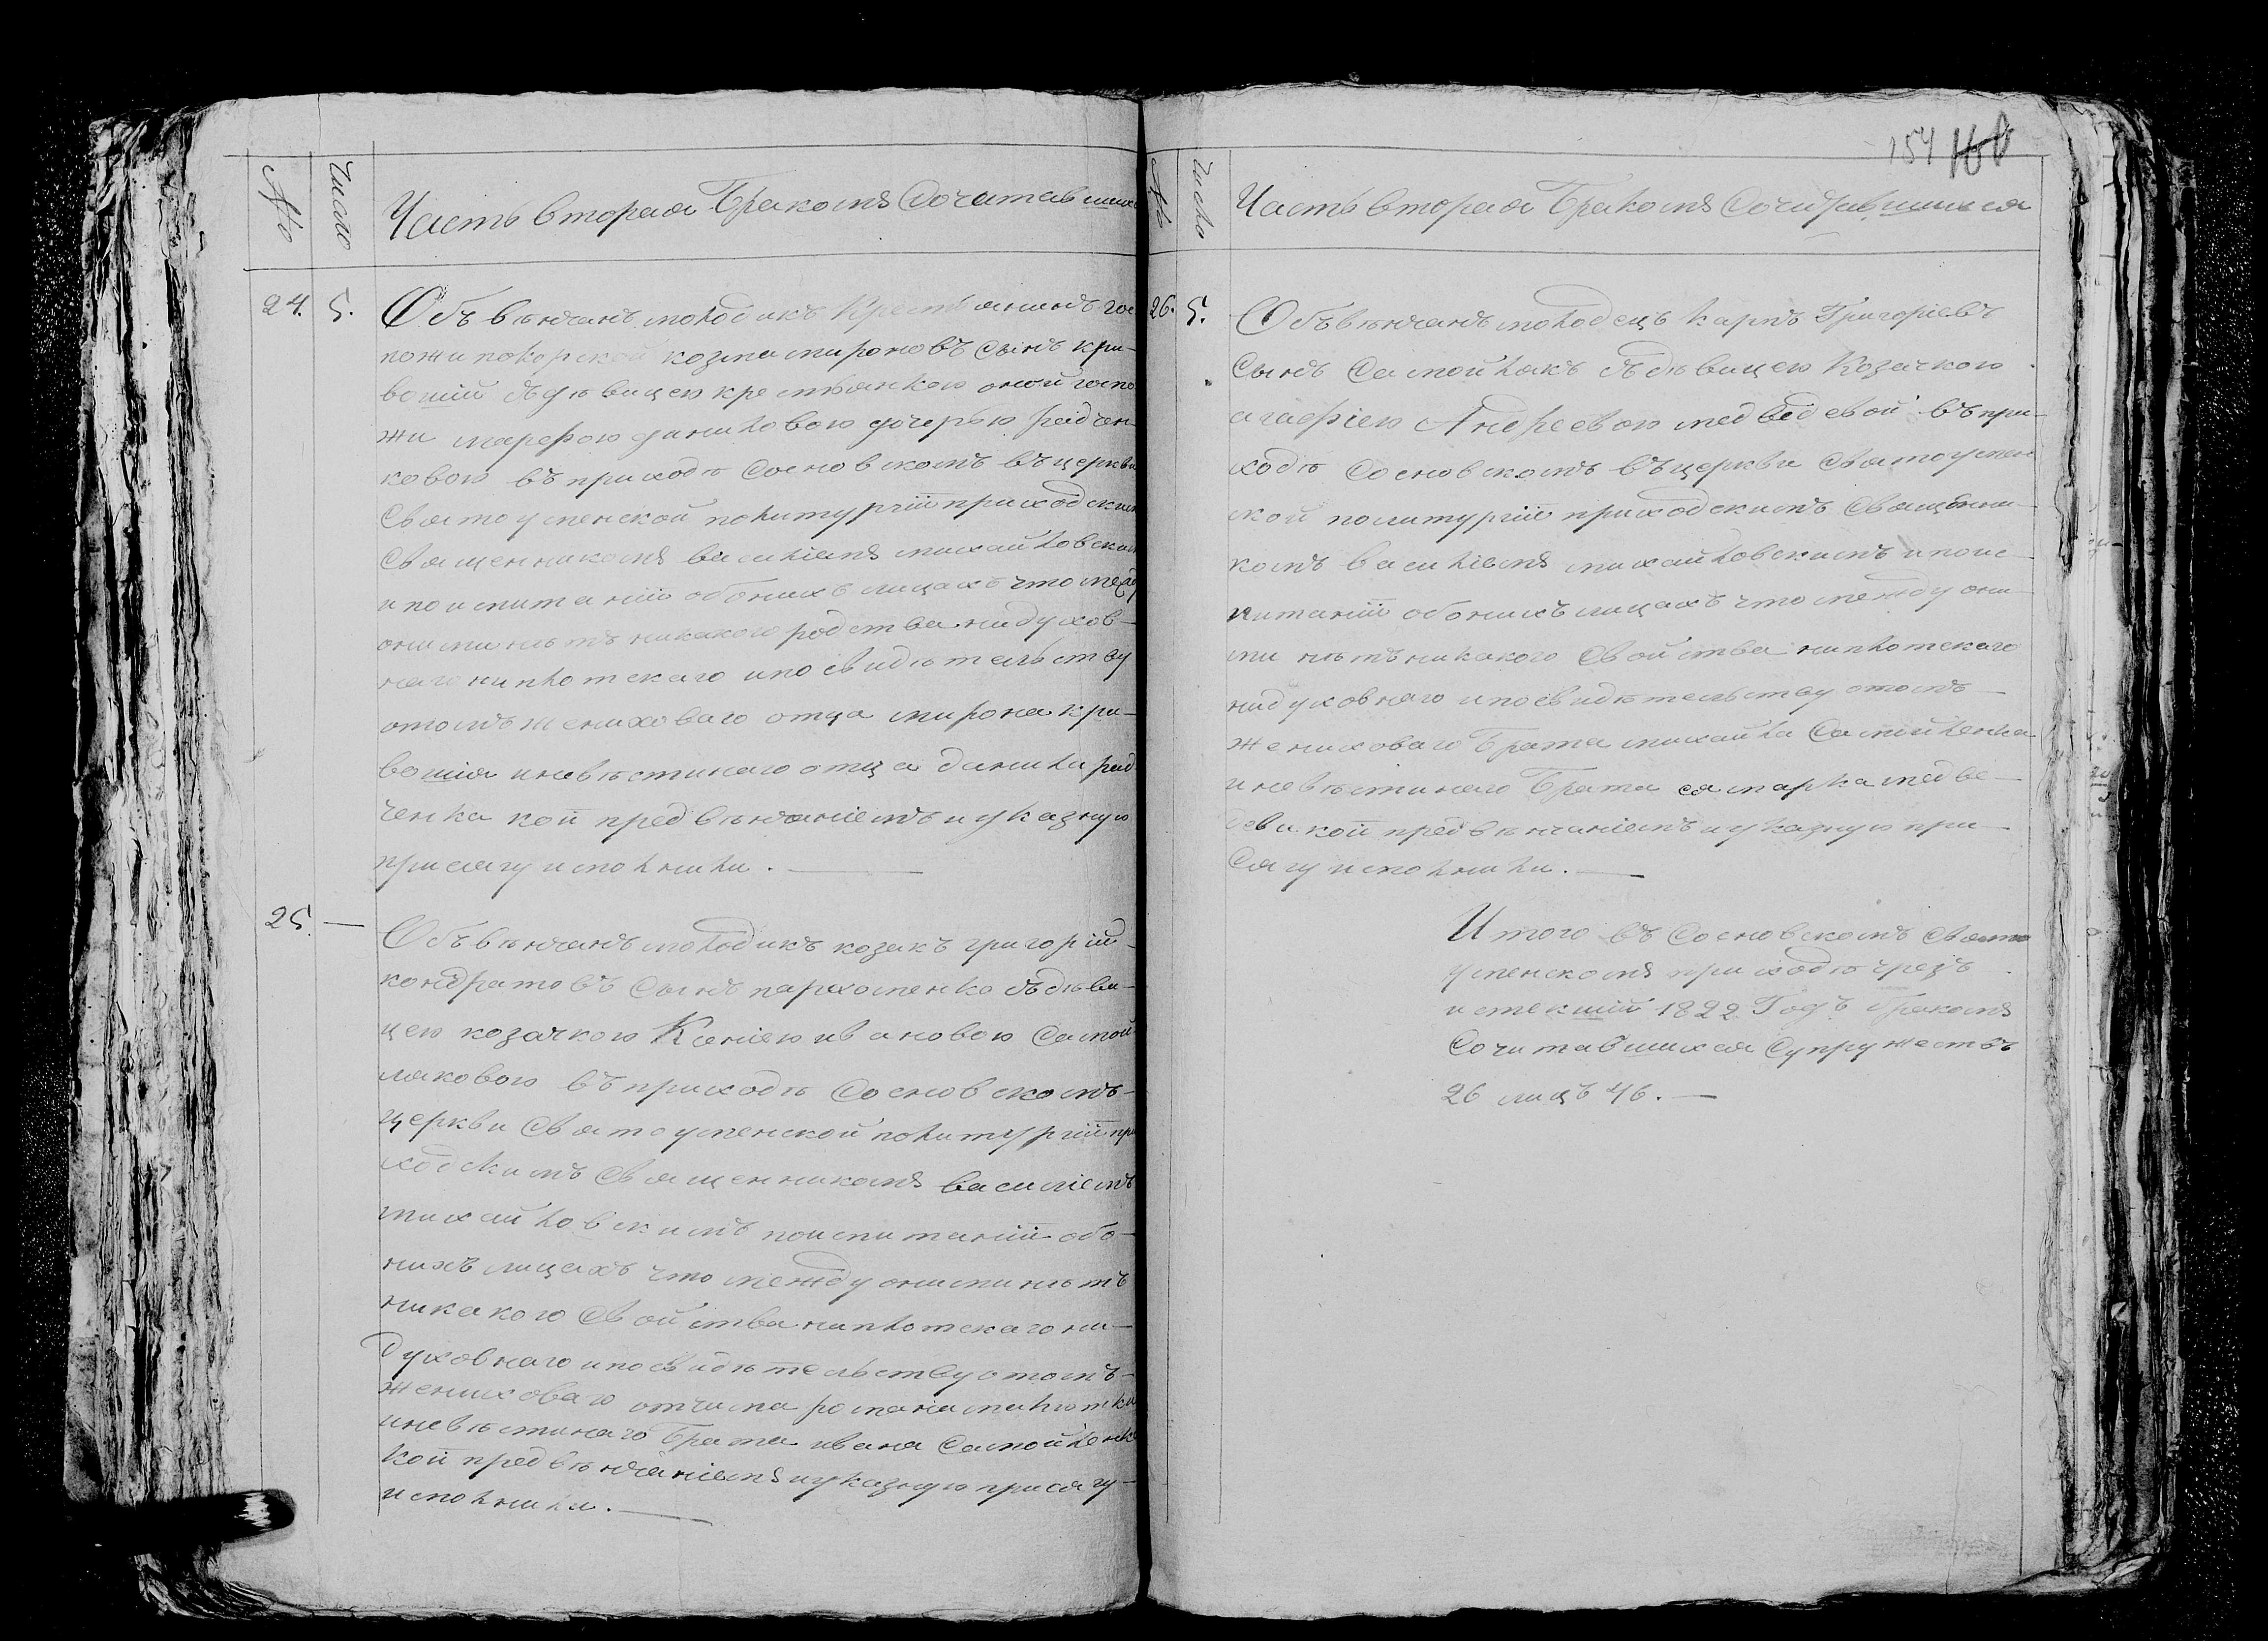 №
Число
Часть вторая Бракомъ Сочетавшихся
24. 5.
Объвѣнчанъ молодикъ Крестьянинъ гос
пожи покорской козма мироновъ Сынъ кри-
вошій здѣвицею крестьянкою оной госпо
жи марфою даниловою дочерью радчен
ковою въ приходѣ Сосновскомъ въ церкви
Святоуспенской политургіи приходским
Священникомъ василіемъ михайловским
и по испитаніи обоныхъ лицахъ что между
оними нѣтъ никакого родства ни духов-
наго ни плотскаго и по свидѣтельству
отомъ жениховаго отца мирона кри-
вошія и невѣстинаго отца данила рад
ченка кои предвѣнчаніемъ и указную
присягу исполнили.
25. —
Объвѣнчанъ молодикъ козакъ григорій
кондратовъ Сынъ пархоменко здѣви-
цею козачкою Ксеніею ивановою Самой
ляковою въ приходѣ Сосновскомъ-
церкви Святоуспенской полтургіи при
ходскимъ Священникомъ василіемъ
михайловскимъ по испитаніи обо-
ныхъ лицахъ что между оними нѣтъ
никакого Свойства ни плотскаго ни-
духовнаго и по свидѣтельству отомъ-
жениховаго отчима романа
и невѣстинаго Брата ивана Самойленк
кои предвѣнчаніемъ и указную присягу-
исполнили.
154 160
№
Число
Часть вторая Бракомъ Сочетавшихся
26. 5.
Объвѣнчанъ молодецъ Карпъ Григоріевъ
Сынъ Самойлякъ здѣвицею Козачкою
агафіею Андреевою медведевой въ при-
ходѣ Сосновскомъ въ церкви Святоуспен
ской политургіи приходскимъ Священи-
комъ василіемъ михайловскимъ и поис-
питаніи обоныхъ лицахъ что между они-
ми нѣтъ никакого Свойства ни плотскаго
ни духовнаго и по свидѣтельству отомъ-
жениховаго Брата михайла Самойленка
и невѣстинаго Брата ея марка медве-
дева кои предвѣнчаніемъ и указную при-
Сягу исполнили.
Итого въ Сосновскомъ Свято
успенскомъ приходѣ чрезъ
истекшій 1822 Годъ бракомъ
Сочитавшихся Супружествъ
26 лицъ 46.